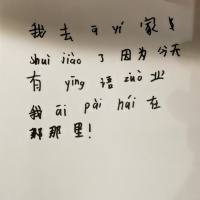 我去 ā yí 家
shuì jiào 了因为今天
有 yīng 语 zuò 业
我 āi pài hái 在
那那里！